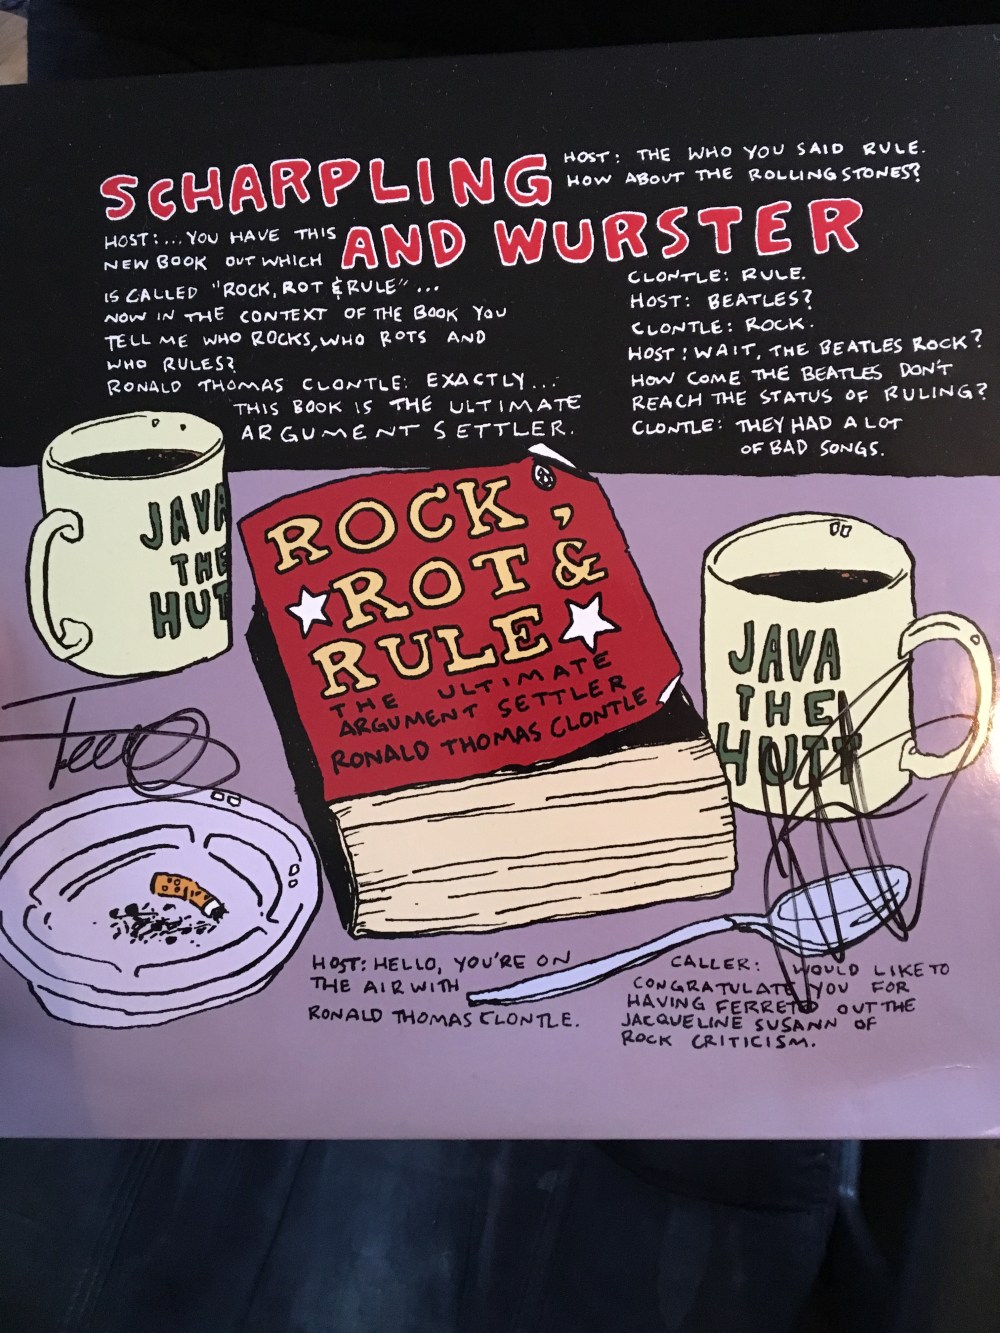 SCHARPLING
AND WURSTER
HOST: THE WHO YOU SAID RULE.
HOW ABOUT THE ROLLING STONES?
HOST:...YOU HAVE THIS
NEW BOOK OUT WHICH
IS CALLED "ROCK, ROT & RULE"...
NOW IN THE CONTEXT OF THE BOOK YOU
TELL ME WHO ROCKS, WHO ROTS AND
WHO RULES?
RONALD THOMAS CLONTLE: EXACTLY...
THIS BOOK IS THE ULTIMATE
ARGUMENT SETTLER.
CLONTLE: RULE.
HOST: BEATLES?
CLONTLE: ROCK.
HOST: WAIT, THE BEATLES ROCK?
HOW COME THE BEATLES DON'T
REACH THE STATUS OF RULING?
CLONTLE: THEY HAD A LOT
OF BAD SONGS.
JAVA
THE
HUT
ROCK,
ROT &
RULE
THE ULTIMATE
ARGUMENT SETTLER
RONALD THOMAS CLONTLE
JAVA
THE
HUTT
HOST: HELLO, YOU'RE ON
THE AIR WITH
RONALD THOMAS CLONTLE.
CALLER: WOULD LIKE TO
CONGRATULATE YOU FOR
HAVING FERRETED OUT THE
JACQUELINE SUSANN OF
ROCK CRITICISM.